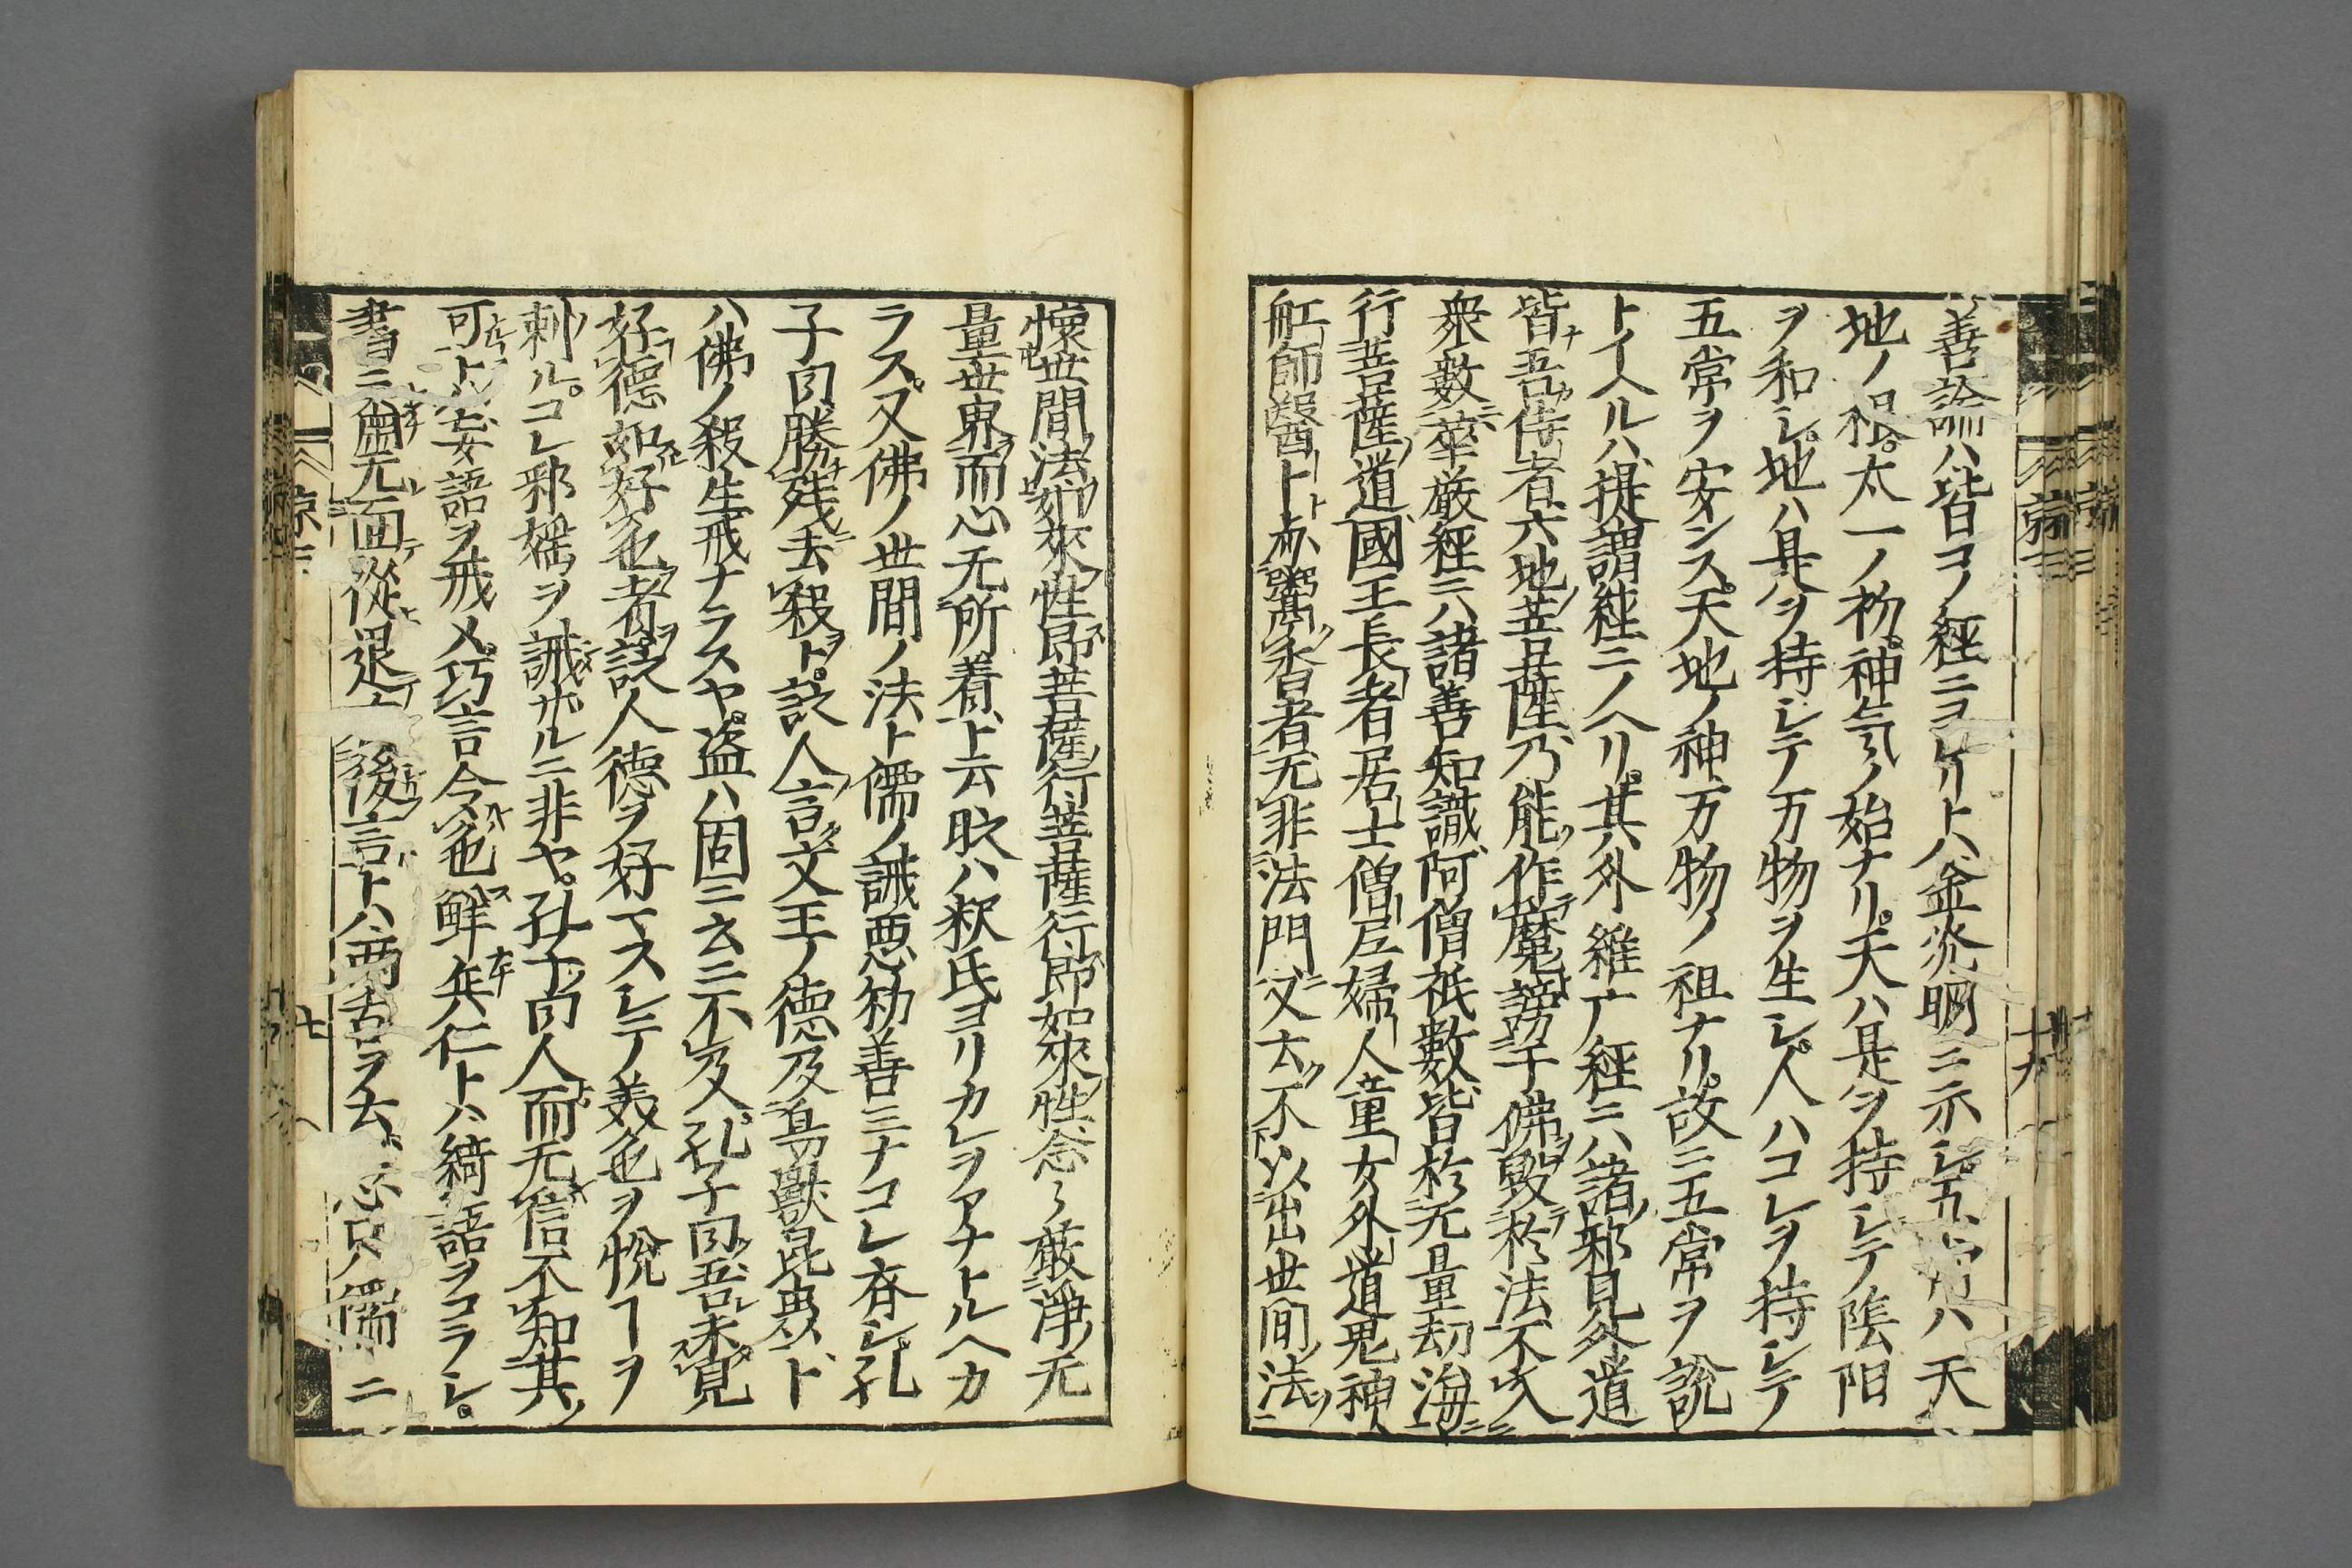 善論ハ皆コノ經ニヨリトハ金光明ニ示シ五常ハ天
地ノ根。太一ノ初。神気ノ始ナリ。天ハ是ヲ持シテ陰陽
ヲ和シ。地ハ是ヲ持シテ万物ヲ生シ。人ハコレヲ持シテ
五常ヲ安ンス。天地ノ神万物ノ祖ナリ。故ニ五常ヲ說
トイヘルハ提謂經ニノヘリ。其ハ外雖广經ニハ諸邪見外道
皆吾侍者六地菩薩乃能作魔謗于佛毀於法不入
衆數華厳經ニハ諸善知識阿僧祇數皆於无量劫海
行菩薩道國王長者居士僧尼婦人童女外道鬼神
舡師醫卜亦鬻香者无非法門又云不以出世間法
懷世間法如來性即菩薩行菩薩行即如來性念々厳淨无
量世界而心无所着ト云時ハ釈氏ヨリカレヲアナトルヘカ
ラス。又佛ノ世間ノ法ト儒ノ誡悪勧善ミナコレ斉シ。孔
子曰勝殘去殺ト。說人言文王ノ德及鳥獸昆虫以ト
ハ佛ノ殺生戒ナラスヤ。盗ハ固ニ云ニ不及。孔子曰吾未覓
好德如好色者說人德ヲ好マスレテ美色ヲ悅フヿヲ
刺ル。コレ邪婬ヲ誡サルニ非ヤ。孔子曰人而无信不知其
可ト妄語ヲ戒メ。巧言令色鮮矣仁トハ綺語ヲコラシ。
書ニ爾无面從退 後言トハ兩舌ヲ去。 ハ儒ニ